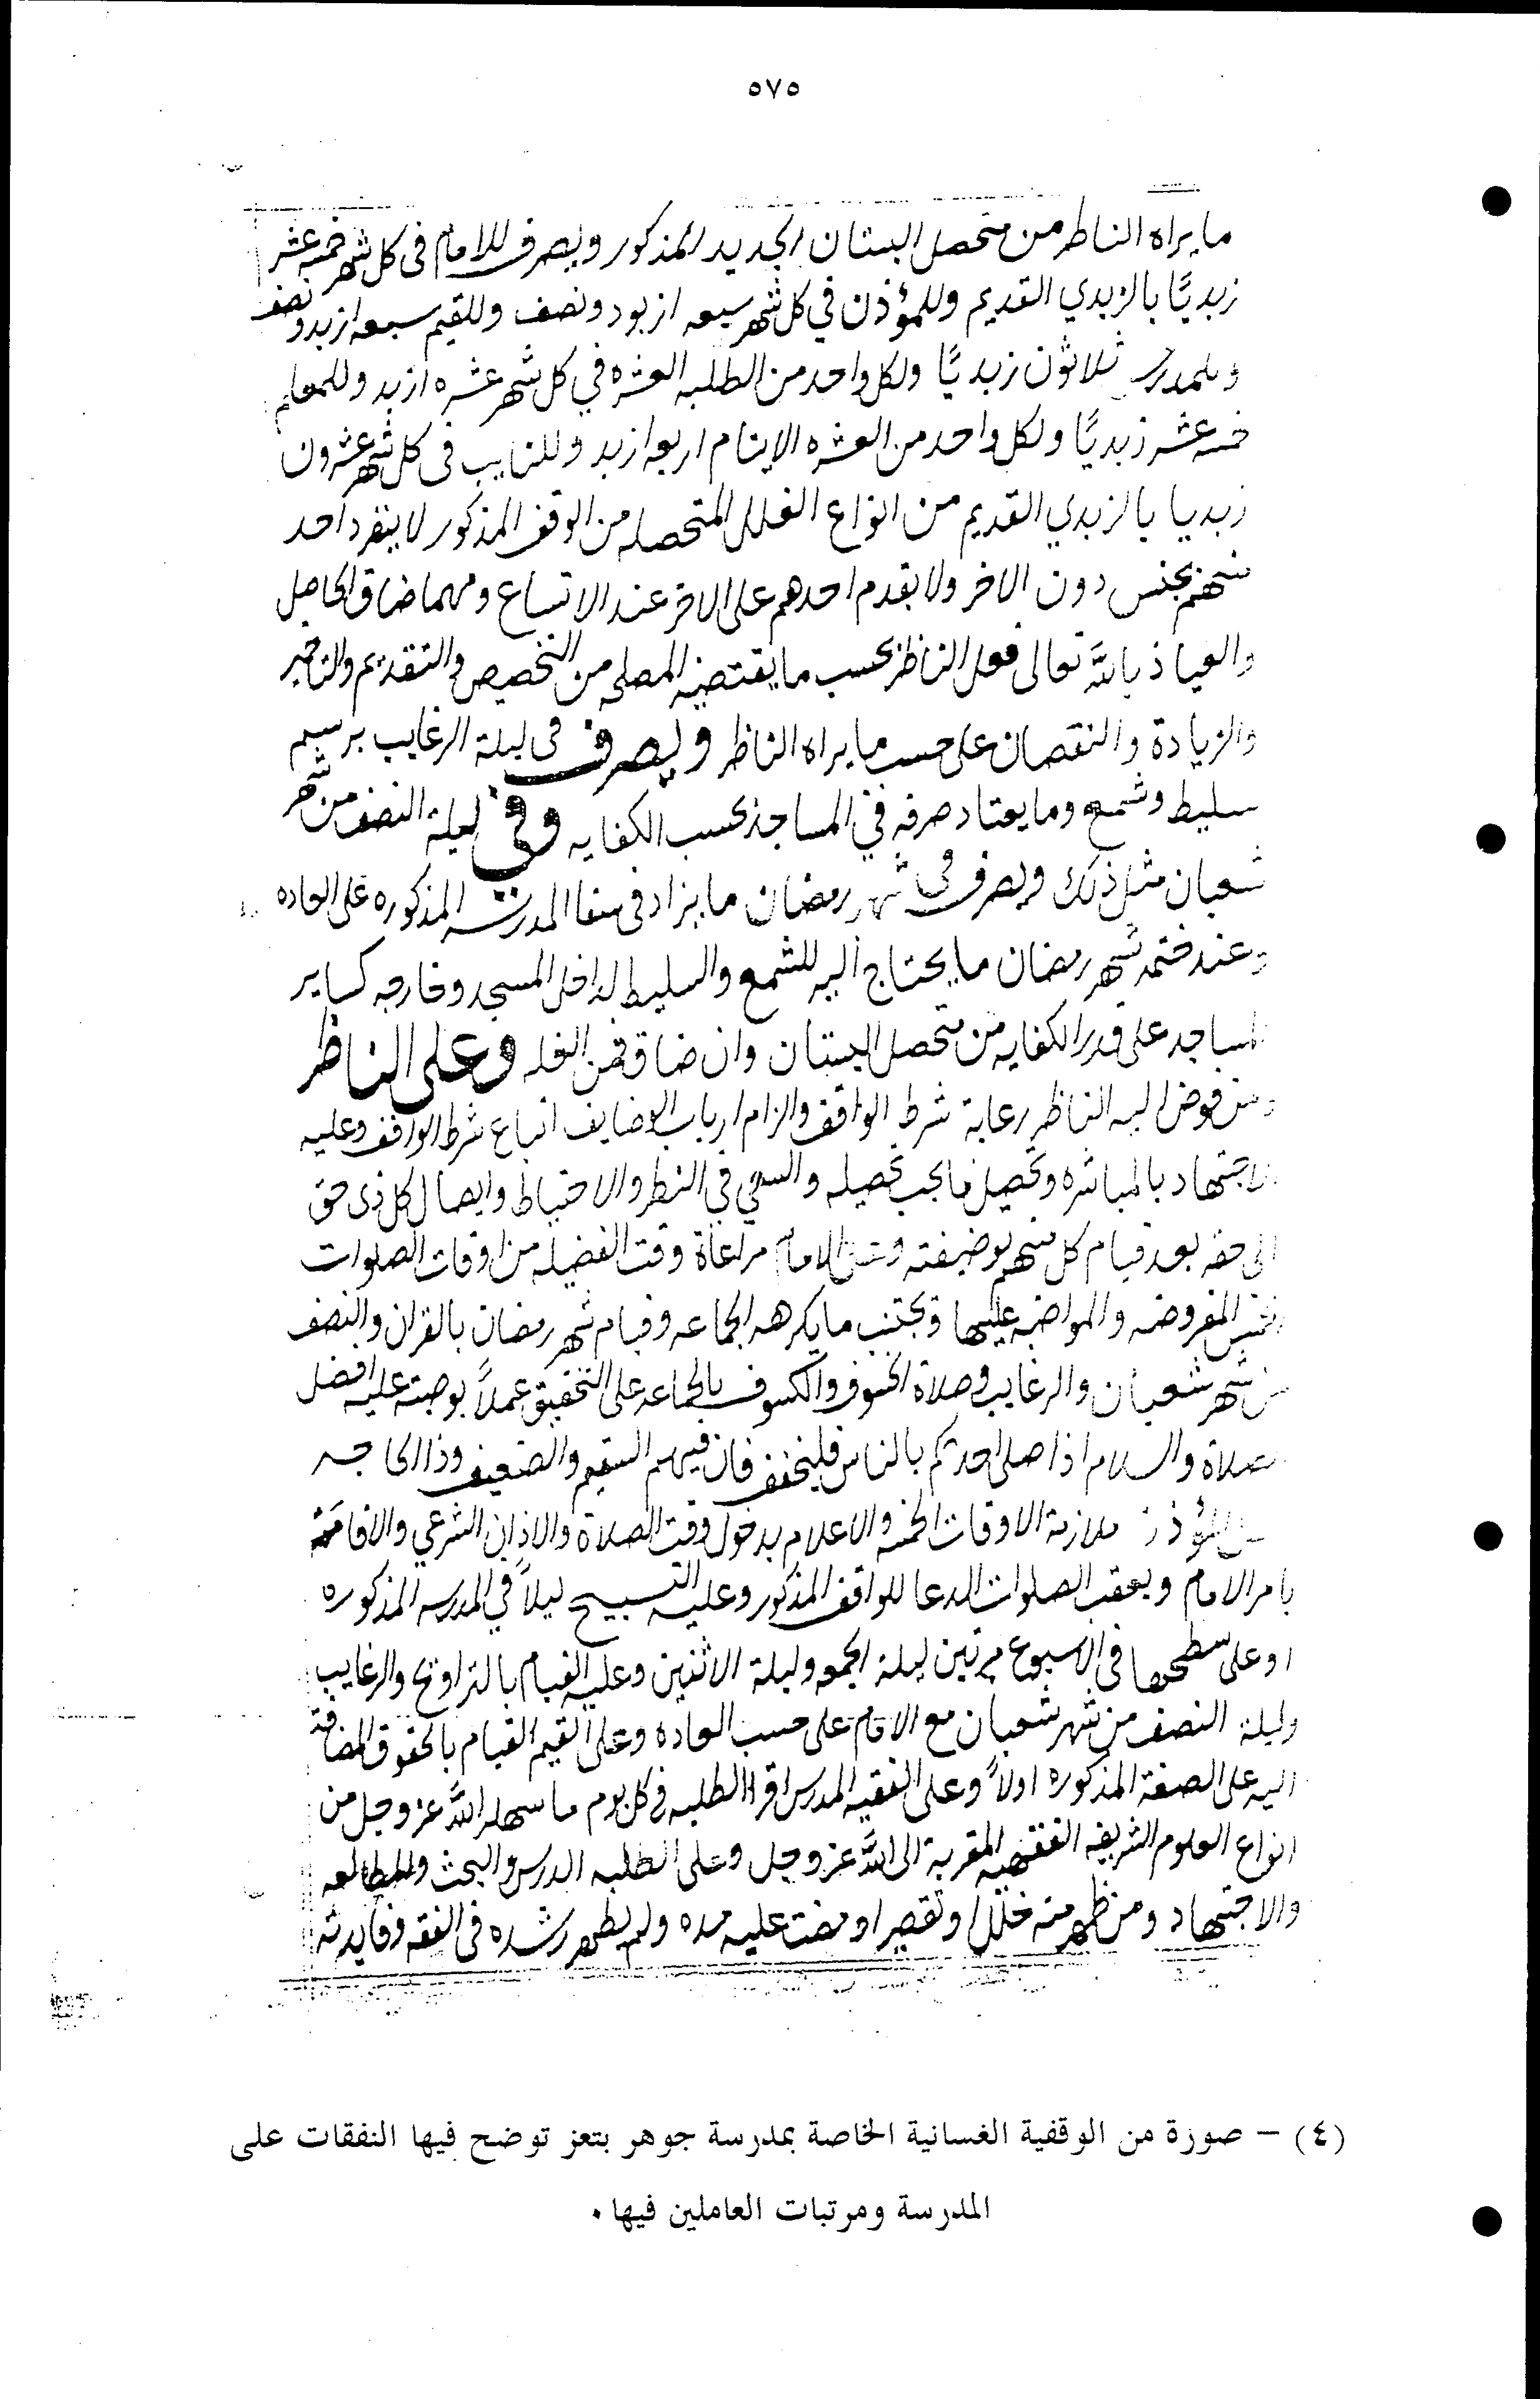 ٥٧٥
ما يراه الناظر من متحصل البستان الجديد المذكور ويصرف للامام فى كل شهر خمسه عشر
زبديًا بالزبدي القديم وللمؤذن في كل شهر سبعه ازبود ونصف وللقيم سبعه ازبد ونصف
وللمدرس ثلاثون زبديًا ولكل واحد من الطلبه العشره في كل شهر عشره ازبد وللمعلم
خمسه عشر زبديًا ولكل واحد من العشره الايتام اربعه ازبد وللنايب فى كل شهر عشرون
زبديا بالزبدي القديم من انواع الغلال المتحصله من الوقف المذكور لا ينفرد احد
منهم بجنس دون الاخر ولا يقدم احدهم على الاخر عند الاتساع ومهما ضاق الحاصل
والعياذ بالله تعالى فعل الناظر بحسب ما يقتضيه المصلحه من التخصيص والتقديم والتاخير
والزيادة والنقصان على حسب ما يراه الناظر ويصرف فى ليلة الرغايب برسم
سليط وشمع وما يعتاد صرفه في المساجد بحسب الكفايه وفى ليلة النصف من شهر
شعبان مثل ذلك ويصرف فى شهر رمضان ما يزاد فى المدرسه المذكوره على العاده
وعند ختمه شهر رمضان ما يحتاج اليه للشمع والسليط لداخل المسجد وخارجه كساير
المساجد على قدر الكفايه من متحصل البستان وان ضاق فمن الغله وعلى الناظر
ومن فوض اليه الناظر رعاية شرط الواقف والزام ارباب الوضايف اتباع شرط الواقف وعليه
الاجتهاد بالمباشره وتحصيل ما يجب تحصيله والسعي في النظر والاحتياط وايصال كل ذى حق
الى حقه بعد قيام كل منهم بوضيفته وعلى الامام مراعاة وقت الفضيله من اوقات الصلوات
الخمس المفروضه والمواضبه عليها ويجتنب ما يكرهه الجماعه وقيام شهر رمضان بالقران والنصف
من شهر شعبان والرغايب وصلاة الخسوف والكسوف بالجماعه على التخفيق عملاً بوصيته عليه افضل
الصلاة والسلام اذا صلى احدكم بالناس فليخفف فان فيهم السقيم والضعيف وذا الحاجه
وعلى المؤذن ملازمة الاوقات الخمسه والاعلام بدخول وقت الصلاة والاذان الشرعي والاقامة
بامر الامام ويعقب الصلوات الدعا للواقف المذكور وعليه التسبيح ليلاً في المدرسه المذكوره
او على سطحها فى الاسبوع مرتين ليلة الجمعه وليلة الاثنين وعليه القيام بالتراويح والرغايب
وليلة النصف من شهر شعبان مع الامام على حسب العاده وعلى القيم القيام بالحقوق المضافة
اليه على الصفة المذكوره اولاً وعلى الفقيه المدرس اقرا الطلبه فى كل يوم ما سهله الله عز وجل من
انواع العلوم الشريفه الفقهيه المقربة الى الله عز وجل وعلى الطلبه الدرس والبحث والمطالعه
والاجتهاد ومن ظهر منه خلل او تقصير او مضت عليه مده ولم يظهر رشده فى الفقه وفايدته
(٤) – صورة من الوقفية الغسانية الخاصة بمدرسة جوهر بتعز توضح فيها النفقات على
المدرسة ومرتبات العاملين فيها.